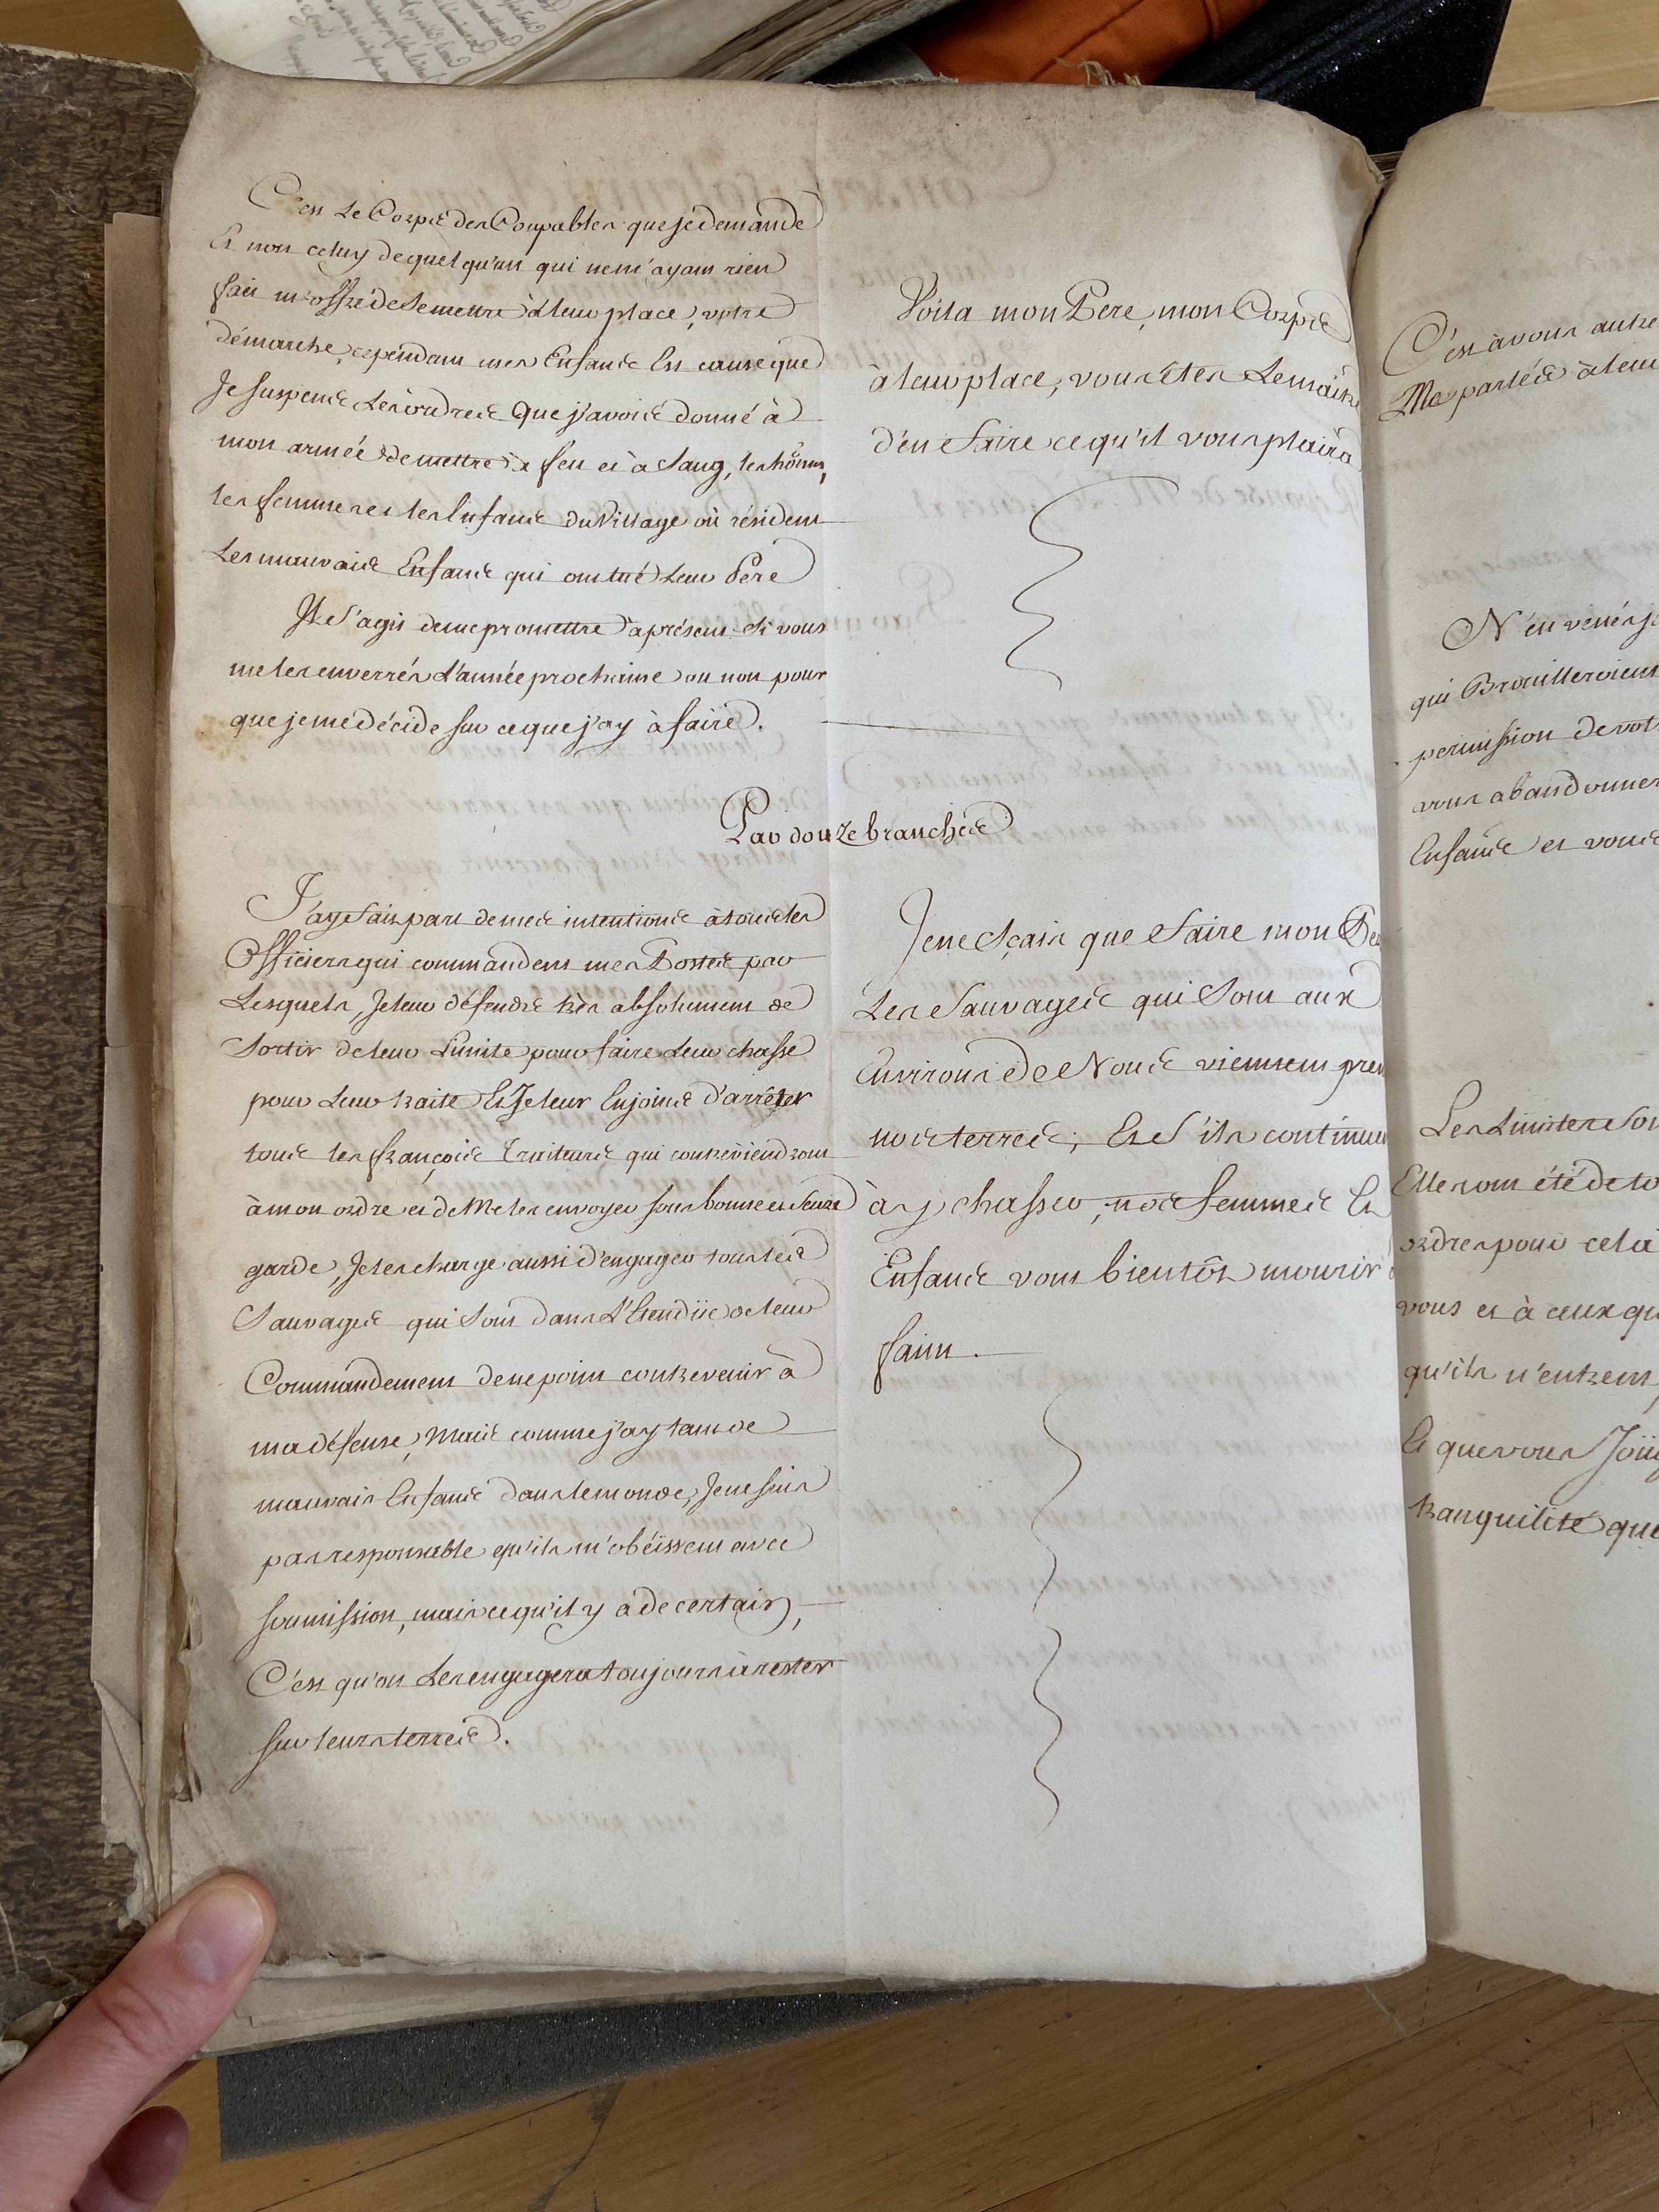 C'est Le Corps des Coupables que je demande
Et non celuy de quelqu'un qui ne m'ayant rien
fait m'offre de se mettre à leur place, votre
démarche, cependant mes Enfants Est cause que
Je suspends Les ordres Que j'avois donné à
mon armée de mettre à feu et à Sang, les hôms,
les femmes et les Enfants du Village où résident
Les mauvais Enfants qui ont tué Leur Père
Il s'agit de me promettre à présent Si vous
me les enverrés L'année prochaine ou non pour
que je me décide sur ce que j'ay à faire.
Voila mon Pere, mon Corps
à leur place, vous êtes Le maitre
d'en faire ce qu'il vous plaira
Par douze branches
J'ay fait part de mes intentions à tous les
Officiers qui commandent mes Postes par
Lesquels, Je leur défends très absolument de
Sortir de leur Limite pour faire Leur chasse
pour Leur traite Et Je leur Enjoins d'arrêter
tous les françois Traiteurs qui contreviendront
à mon ordre et de Me les envoyer sous bonne et Seure
garde, Je les charge aussi d'engager tous les
Sauvages qui Sont dans L'Etendüe de leur
Commandement de ne point contrevenir à
ma défense, Mais comme j'ay tant de
mauvais Enfants dans le monde, Je ne suis
pas responsable qu'ils m'obéissent avec
soumission, mais ce qu'il y a de certain,
C'est qu'on Les engagera toujours à rester
sur leurs terres.
Je ne Sçais que faire mon Pe
Les Sauvages qui Sont aux
Environs de Nous viennent pren
nos terres, Et s'ils continuent
à y chasser, nos femmes Et
Enfants vont bientôt mourir
faim.
C'est à vous autre
Me parlés à leur
N'en venés
qui Brouilleroient
permission de vot
vous abandonner
Enfants et vous
Les Limites Son
Elles ont été de to
ordres pour cela
vous et à ceux qu
qu'ils n'entrent
Et que vous Joüi
tranquilité que